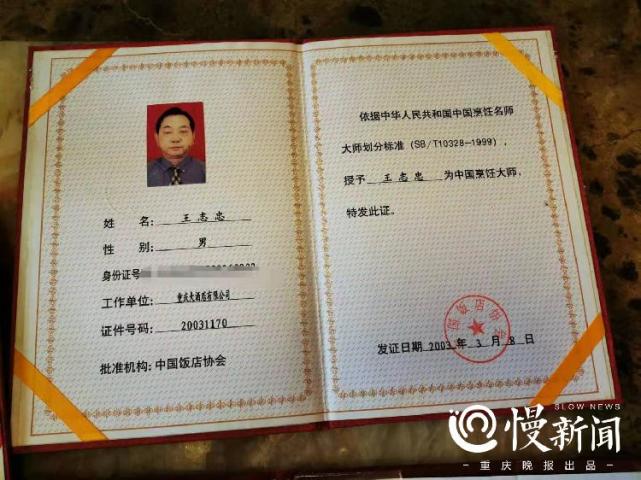 姓 名: 王志忠
性 别: 男
身份证号
工作单位: 重庆大酒店有限公司
证件号码: 20031170
批准机构: 中国饭店协会
依据中华人民共和国中国烹饪名师
大师划分标准（SB/T10328-1999），
授予 王志忠 为中国烹饪大师，
特发此证。
中国饭店协会
发证日期 2003 年 3 月 8 日
SLOW NEWS
慢新闻
重庆晚报出品